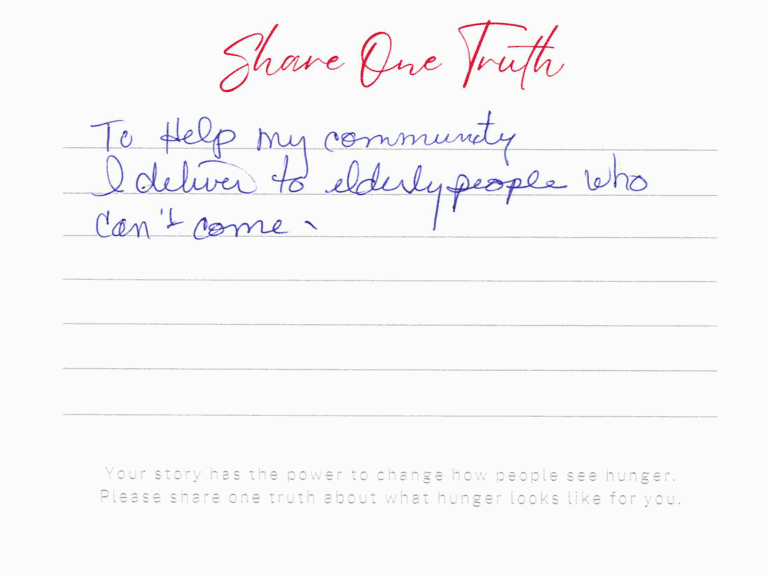 Share One Truth
To Help my community
I deliver to elderly people who
can't come.
Your story has the power to change how people see hunger.
Please share one truth about what hunger looks like for you.